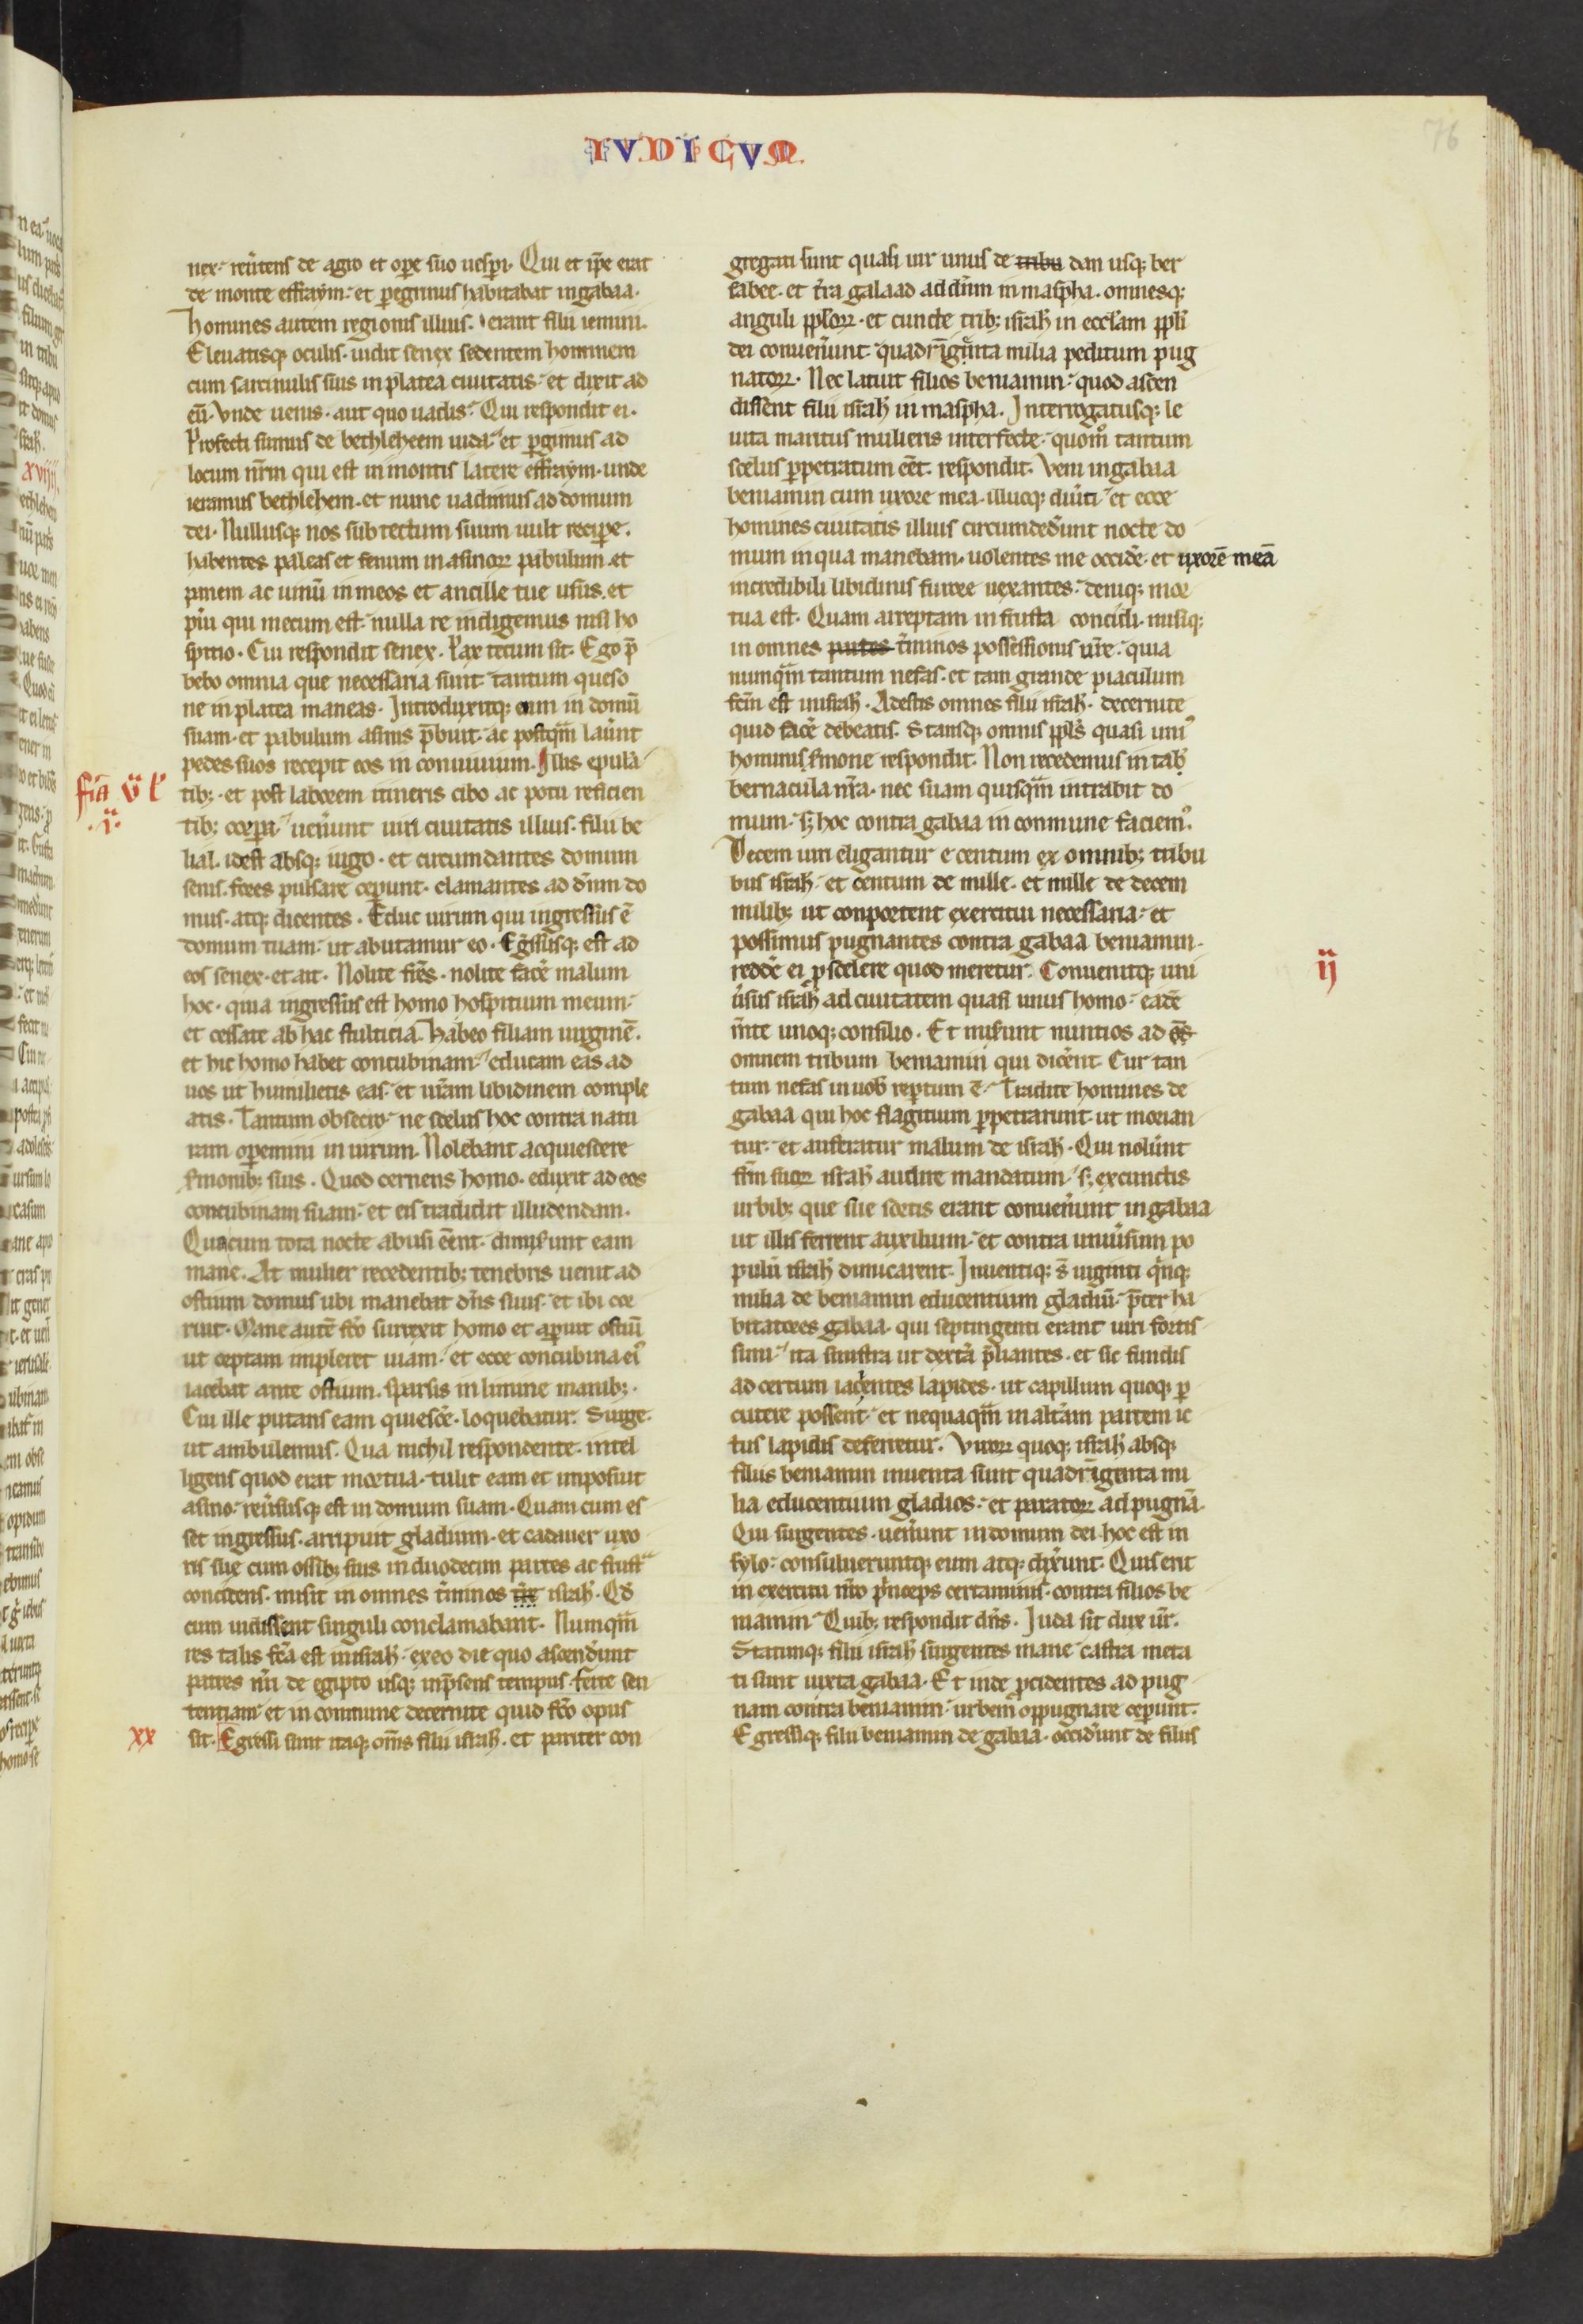 IVDICVM
76
nex· reu̾tens de agro et oꝑe suo uesꝑi· Qui et ip̄e erat
de monte effraym· et ꝑegrinus habitabat in gabaa·
homines autem regionis illius· erant filii iemini·
Eleuatisq; oculis· uidit senex sedentem hominem
cum sarcinulis suis in platea ciuitatis· et dixit ad
eū· Vnde uenis· aut quo uadis· Qui respondit ei·
Profecti sumus de bethleheem iuda· et ꝑgimus ad
locum nr̄m qui est in montis latere effraym· unde
ieramus bethlehem· et nunc uadimus ad domum
dei· Nullusq; nos sub tectum suum uult reciꝑe·
habentes paleas et fenum in asinoꝝ pabulum· et
panem ac uinū in meos et ancille tue usus· et
pu̾i qui mecum est· nulla re indigemus nisi ho
spitio· Cui respondit senex· Pax tecum sit· Ego p̄
bebo omnia que necessaria sunt tantum queso
ne in platea maneas· Introduxitq; eum in domū
suam· et pabulum asinis p̄buit· ac postqm̄ lau̾unt
pedes suos recepit eos in conuiuium· Illis epulā
tib;· et post laborem itineris cibo ac potu reficien
tib; corꝑa· uen̾unt uiri ciuitatis illius· filii be
lial· idest absq; iugo· et circumdantes domum
senis· fores pulsare ceꝑunt· clamantes ad dn̄m do
mus· atq; dicentes· Educ uirum qui ingressus ē
domum tuam· ut abutamur eo· Eg̾ssusq; est ad
eos senex· et ait· Nolite fr̄es· nolite face̾ malum
hoc· quia ingressus est homo hospitium meum·
et cessate ab hac stulticia· habeo filiam uirginē·
et hic homo habet concubinam· educam eas ad
uos ut humilietis eas· et ur̄am libidinem comple
atis· Tantum obsecro· ne scelus hoc contra natu
ram oꝑemini in uirum· Nolebant acquiescere
s̾monib; suis· Quod cernens homo· eduxit ad eos
concubinam suam· et eis tradidit illudendam·
Quacum tota nocte abusi eēnt· dimis̾unt eam
mane· At mulier recedentib; tenebris uenit ad
ostium domus ubi manebat dn̄s suus· et ibi cor
ruit· Mane autē fc̄o surrexit homo et aꝑuit ostiū
ut ceptam impleret uiam· et ecce concubina ei᾿
iacebat ante ostium· sparsis in limine manib;·
Cui ille putans eam quiesce̾· loquebatur· Surge·
ut ambulemus· Qua nichil respondente· intel
ligens quod erat mortua· tulit eam et imposuit
asino· reu̾susq; est in domum suam· Quam cum es
set ingressus· arripuit gladium· et cadauer uxo
ris sue cum ossib; suis in duodecim partes ac frusta
concidens· misit in omnes t̾minos isrl̄· Qd̾
cum uidissent singuli conclamabant· Numqm̄
res talis fc̄a est in isrl̄· ex eo die quo ascend̾unt
patres nr̄i de egipto usq; in p̄sens tempus· ferte sen
tentiam· et in commune decernite quid fc̄o opus
sit· Egressi sunt itaq; om̄s filii isrl̄· et pariter con
fr̄ia v̾ l᾿
·i·
xx
gregati sunt quasi uir unus de tribu dan usq; ber
sabee· et t̾ra galaad ad dn̄m in maspha· omnesq;
anguli ppl̄oꝝ· et cuncte trib; isrl̄ in eccl̄am ppl̄i
dei conuen̾unt quadringinta milia peditum pug
natoꝝ· Nec latuit filios beniamin· quod ascen
dissent filii isrl̄ in maspha· Interrogatusq; le
uita maritus mulieris interfecte· quom̊ tantum
scelus ꝑpetratum eēt· respondit· Veni in gabaa
beniamin cum uxore mea· illucq; diu̾ti· et ecce
homines ciuitatis illius circumded̾unt nocte do
mum in qua manebam· uolentes me occide̾· et uxorē meā
incredibili libidinis furore uexantes· deniq; mor
tua est· Quam arreptam in frusta concidi· misiq;
in omnes partes t̾minos possessionis ur̄e· quia
nunqm̄ tantum nefas· et tam grande piaculum
fcm̄ est in isrl̄· Adestis omnes filii isrl̄· decernite
quid face̾ debeatis· Stansq; omnis ppl̄s quasi uni᾿
hominis s̾mone respondit· Non recedemus in tab̾
bernacula nr̄a· nec suam quisqm̄ intrabit do
mum· s; hoc contra gabaa in commune faciem᾿·
Decem uiri eligantur e centum ex omnib; tribu
bus isrl̄· et centum de mille· et mille de decem
milib; ut conportent exercitui necessaria· et
possimus pugnantes contra gabaa beniamin·
redde̾ ei ꝓ scelere quod meretur· Conuenitq; uni
u̾sus isrl̄ ad ciuitatem quasi unus homo· eadē
m̄te unoq; consilio· Et mis̾unt nuntios ad os̄
omnem tribum beniamin qui dice̾nt· Cur tan
tum nefas in uob̾ reꝑtum ē· Tradite homines de
gabaa qui hoc flagitium ꝑpetrarunt· ut morian
tur· et auferatur malum de isrl̄· Qui nolu̾nt
fr̄m suoꝝ isrl̄ audire mandatum· s; ex cunctis
urbib; que sue sortis erant conuen̾unt in gabaa
ut illis ferrent auxilium· et contra uniu̾sum po
pulū isrl̄ dimicarent· Inuentiq; s̄ uiginti qi̾nq;
milia de beniamin educentium gladiū· p̄ter ha
bitatores gabaa· qui septingenti erant uiri fortis
simi· ita sinistra ut dextra p̄liantes· et sic fundis
ad certum iacientes lapides· ut capillum quoq; ꝑ
cutere possent· et nequaqm̄ in alt̾am partem ic
tus lapidis deferretur· Viroꝝ quoq; isrl̄ absq;
filiis beniamin inuenta sunt quadringenta mi
lia educentium gladios· et paratoꝝ ad pugnā·
Qui surgentes· uen̾unt in domum dei· hoc est in
sylo· consulueruntq; eum atq; dix̾unt· Quis erit
in exercitu nr̄o p̾nceps certaminis· contra filios be
niamin· Quib; respondit dn̄s· Iuda sit dux ur̄·
Statimq; filii isrl̄ surgentes mane· castra meta
ti sunt iuxta gabaa· Et inde ꝓcedentes ad pug
nam contra beniamin· urbem oppugnare ceꝑunt·
Egressiq; filii beniamin de gabaa· occid̾unt de filiis
ij